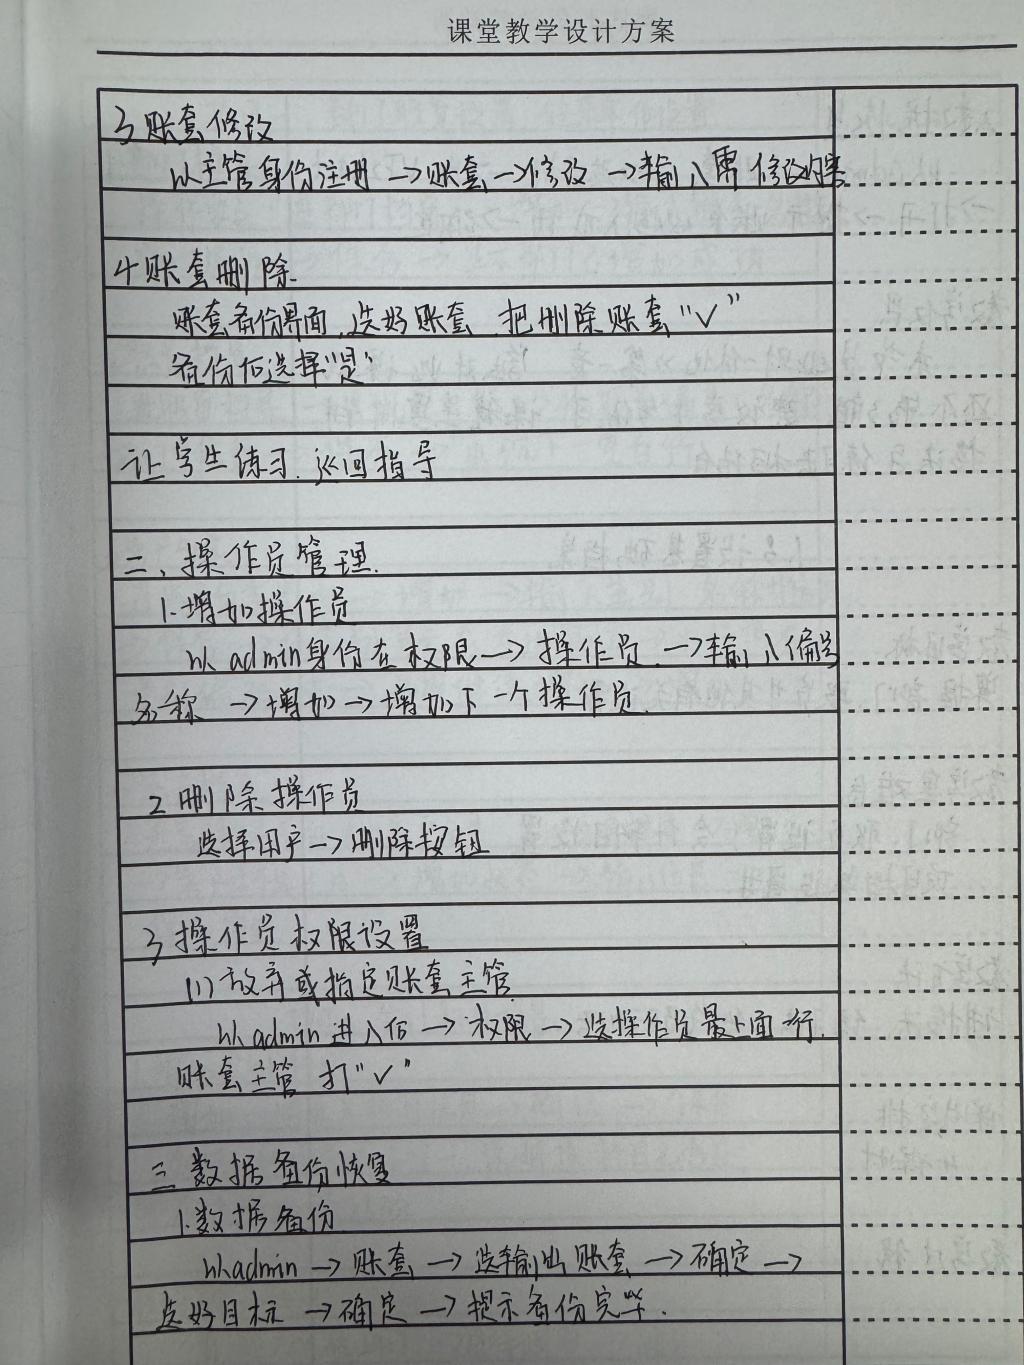 课堂教学设计方案
3 账套修改
以主管身份注册→账套→修改→输入需修改内容
4 账套删除
账套备份界面,选好账套,把删除账套"✓"
备份后选择"是"
让学生练习.巡回指导
二、操作员管理.
1.增加操作员
以admin身份在权限→操作员.→输入编号
名称→增加→增加下一个操作员.
2 删除操作员
选择用户→删除按钮
3 操作员权限设置
(1)放弃或指定账套主管.
以admin进入后→权限→选操作员最上面一行.
账套主管 打"✓"
三 数据备份恢复
1.数据备份
以admin→账套→选输出账套→确定→
选好目标→确定→提示备份完毕.